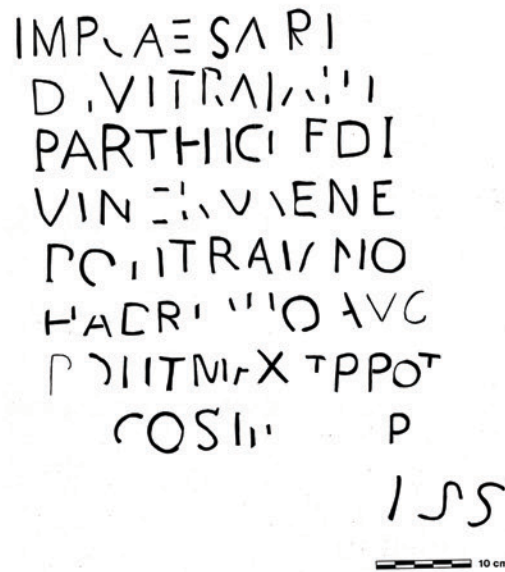 IMP CAESARI
DIVI TRAIANI
PARTHICI F DI
VI NE
TRAIANO
HADRIANO AVG
MAX T P POT
COS III P
10 cm